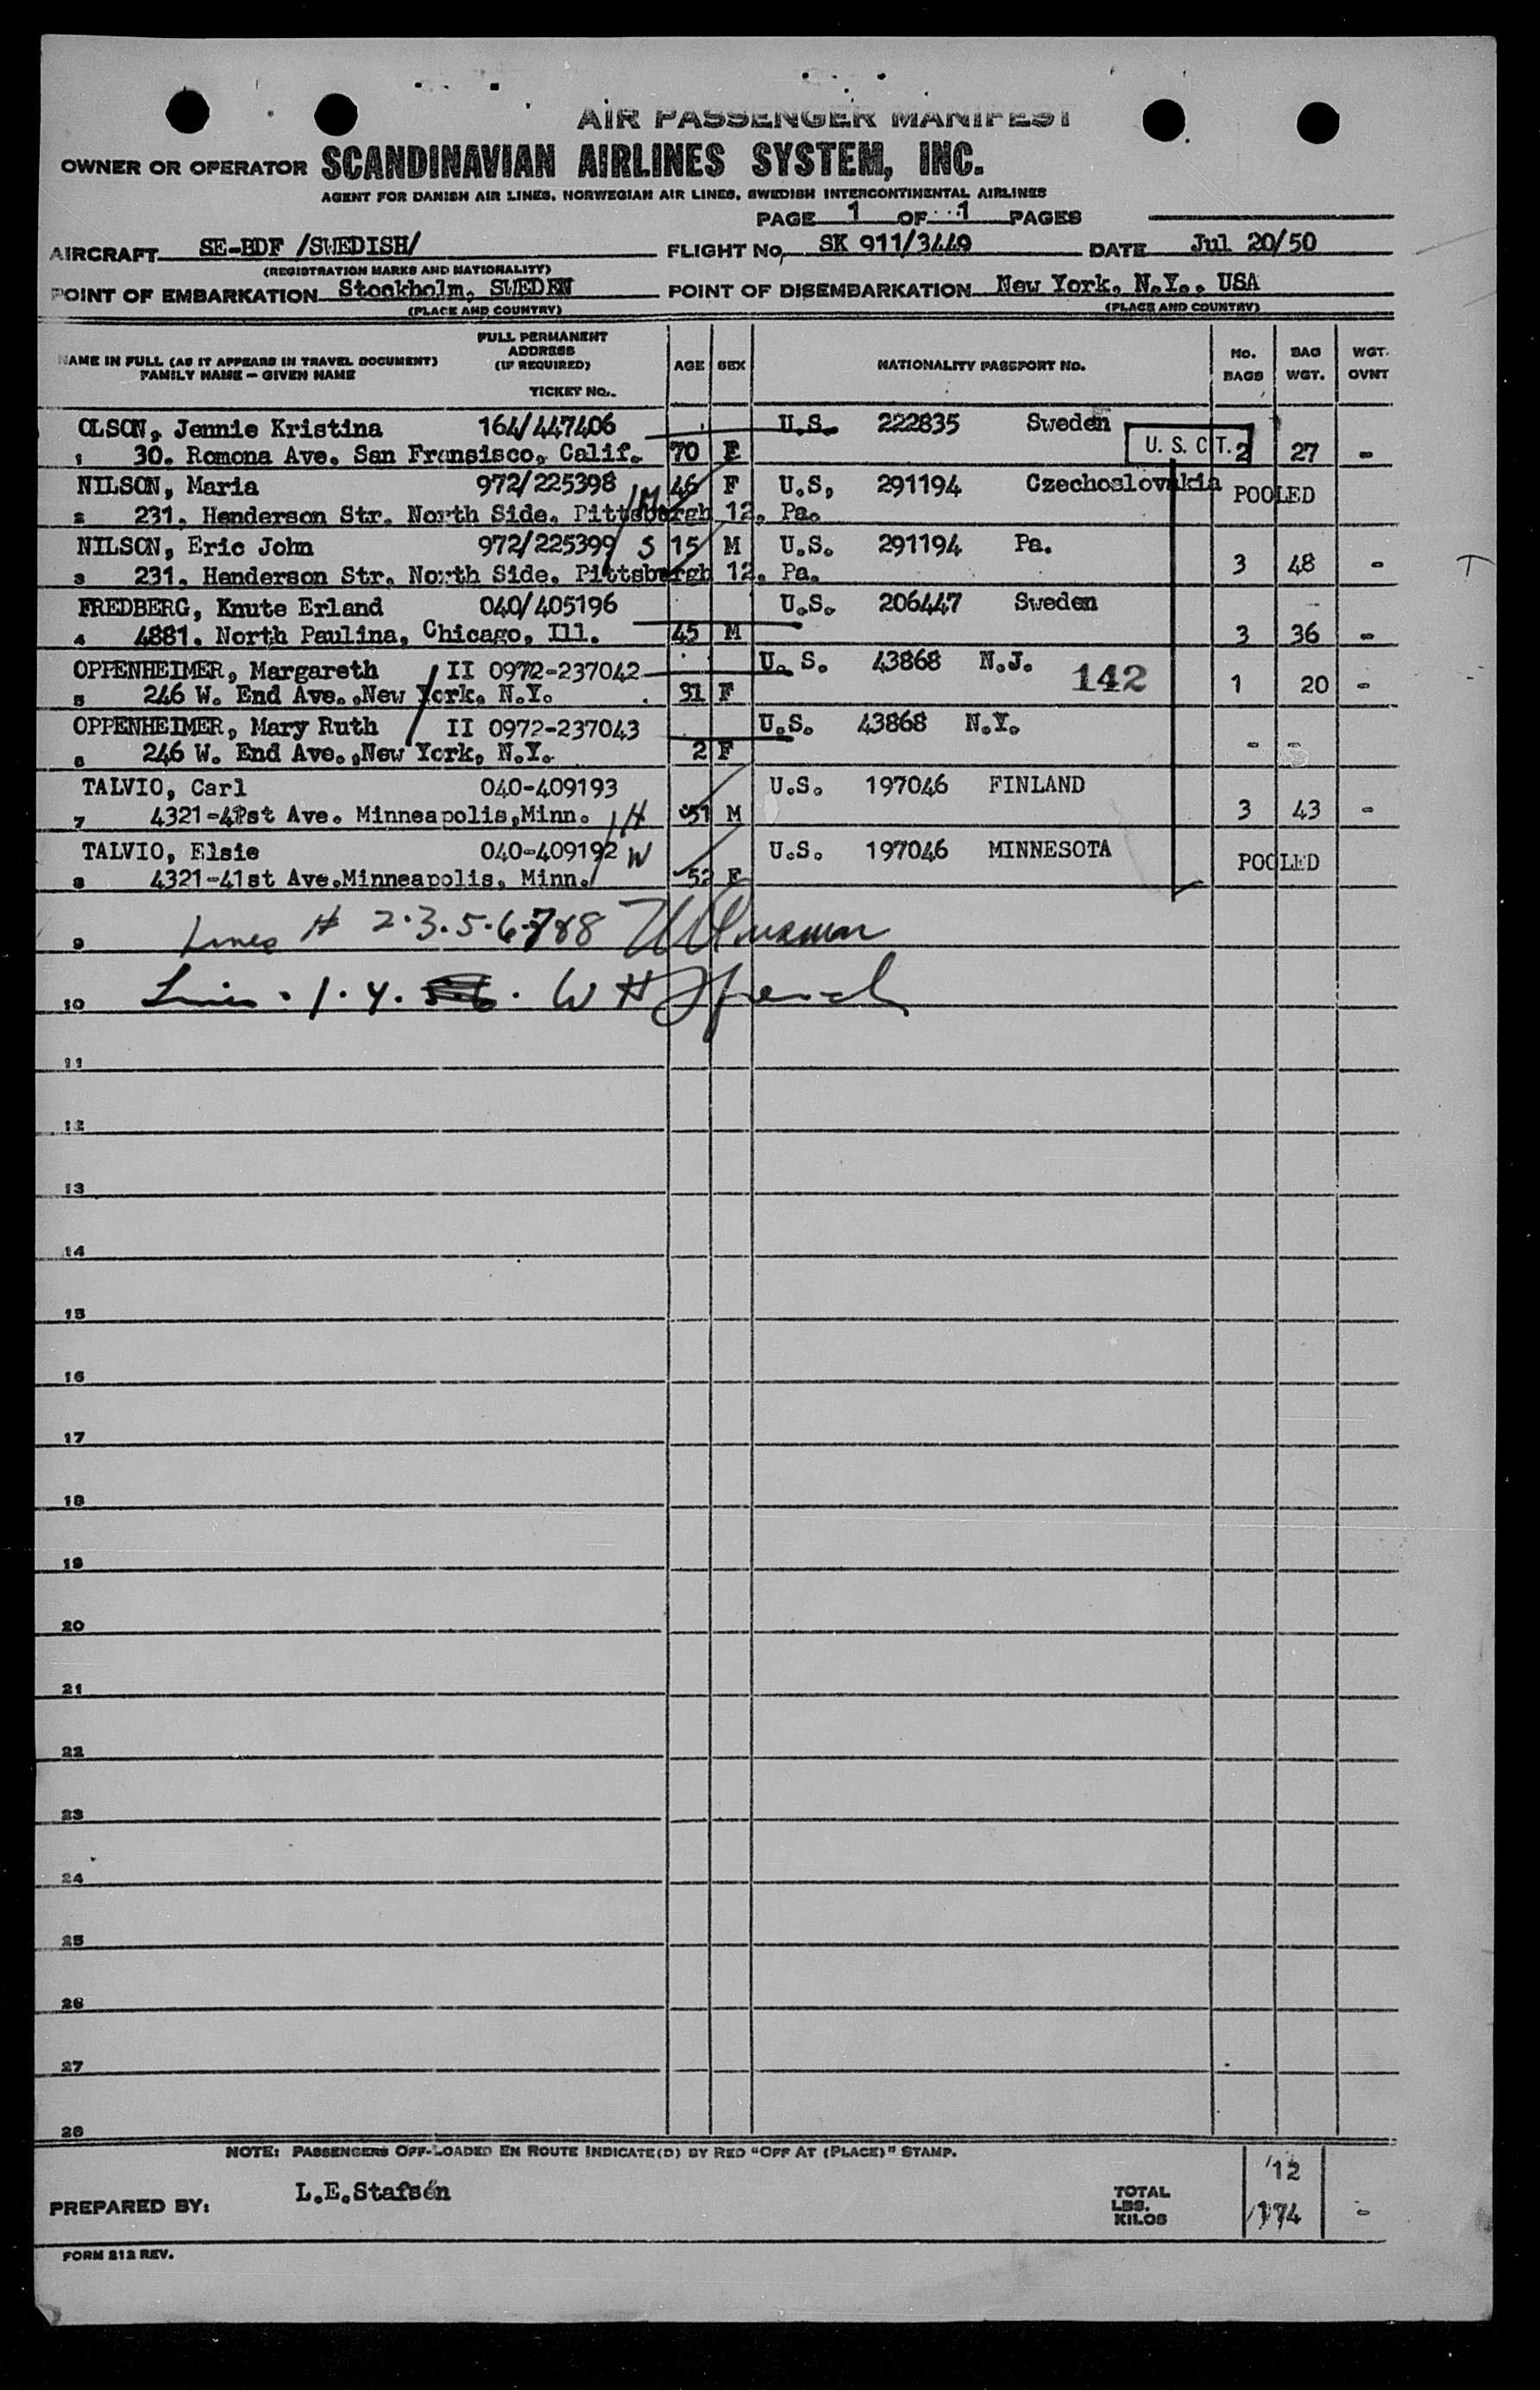 AIR PASSENGER MANIFEST
OWNER OR OPERATOR SCANDINAVIAN AIRLINES SYSTEM, INC.
AGENT FOR DANISH AIR LINES, NORWEGIAN AIR LINES, SWEDISH INTERCONTINENTAL AIRLINES
PAGE 1 OF 1 PAGES
AIRCRAFT SE-BDF /SWEDISH/ FLIGHT No. SK 911/3449 DATE Jul 20/50
(REGISTRATION MARKS AND NATIONALITY)
POINT OF EMBARKATION Stockholm, SWEDEN POINT OF DISEMBARKATION New York, N.Y., USA
(PLACE AND COUNTRY) (PLACE AND COUNTRY)
NAME IN FULL (AS IT APPEARS IN TRAVEL DOCUMENT) FAMILY NAME - GIVEN NAME FULL PERMANENT ADDRESS (IF REQUIRED) TICKET NO. AGE SEX NATIONALITY PASSPORT NO. No. BAGS BAG WGT. WGT. OVNT
OLSON, Jennie Kristina 164/447406 U.S. 222835 Sweden
U. S. C T.
1 30. Romona Ave. San Fransisco, Calif. 70 F 2 27 -
NILSON, Maria 972/225398 M 46 F U.S, 291194 Czechoslovakia POOLED
2 231. Henderson Str. North Side. Pittsburgh 12. Pa.
NILSON, Eric John 972/225399 S 15 M U.S. 291194 Pa.
3 231. Henderson Str. North Side. Pittsburgh 12. Pa. 3 48 - T
FREDBERG, Knute Erland 040/405196 U.S. 206447 Sweden
4 4881. North Paulina, Chicago, Ill. 45 M 3 36 -
OPPENHEIMER, Margareth II 0972-237042 U. S. 43868 N.J. 142
5 246 W. End Ave.,New York. N.Y. 31 F 1 20 -
OPPENHEIMER, Mary Ruth II 0972-237043 U.S. 43868 N.Y.
6 246 W. End Ave.,New York, N.Y. 2 F - -
TALVIO, Carl 040-409193 U.S. 197046 FINLAND
7 4321-41st Ave. Minneapolis,Minn. H 51 M 3 43 -
TALVIO, Elsie 040-409192 W U.S. 197046 MINNESOTA POOLED
8 4321-41st Ave.Minneapolis, Minn. 52 F
9 Lines # 2.3.5.6.7&8
10 Lines. 1.4. 5-6. W H
11
12
13
14
15
16
17
18
19
20
21
22
23
24
25
26
27
28
NOTE: PASSENGERS OFF-LOADED EN ROUTE INDICATE(D) BY RED "OFF AT (PLACE)" STAMP.
PREPARED BY: L.E.Stafsén
12
TOTAL LBS. KILOS 174 -
FORM 212 REV.